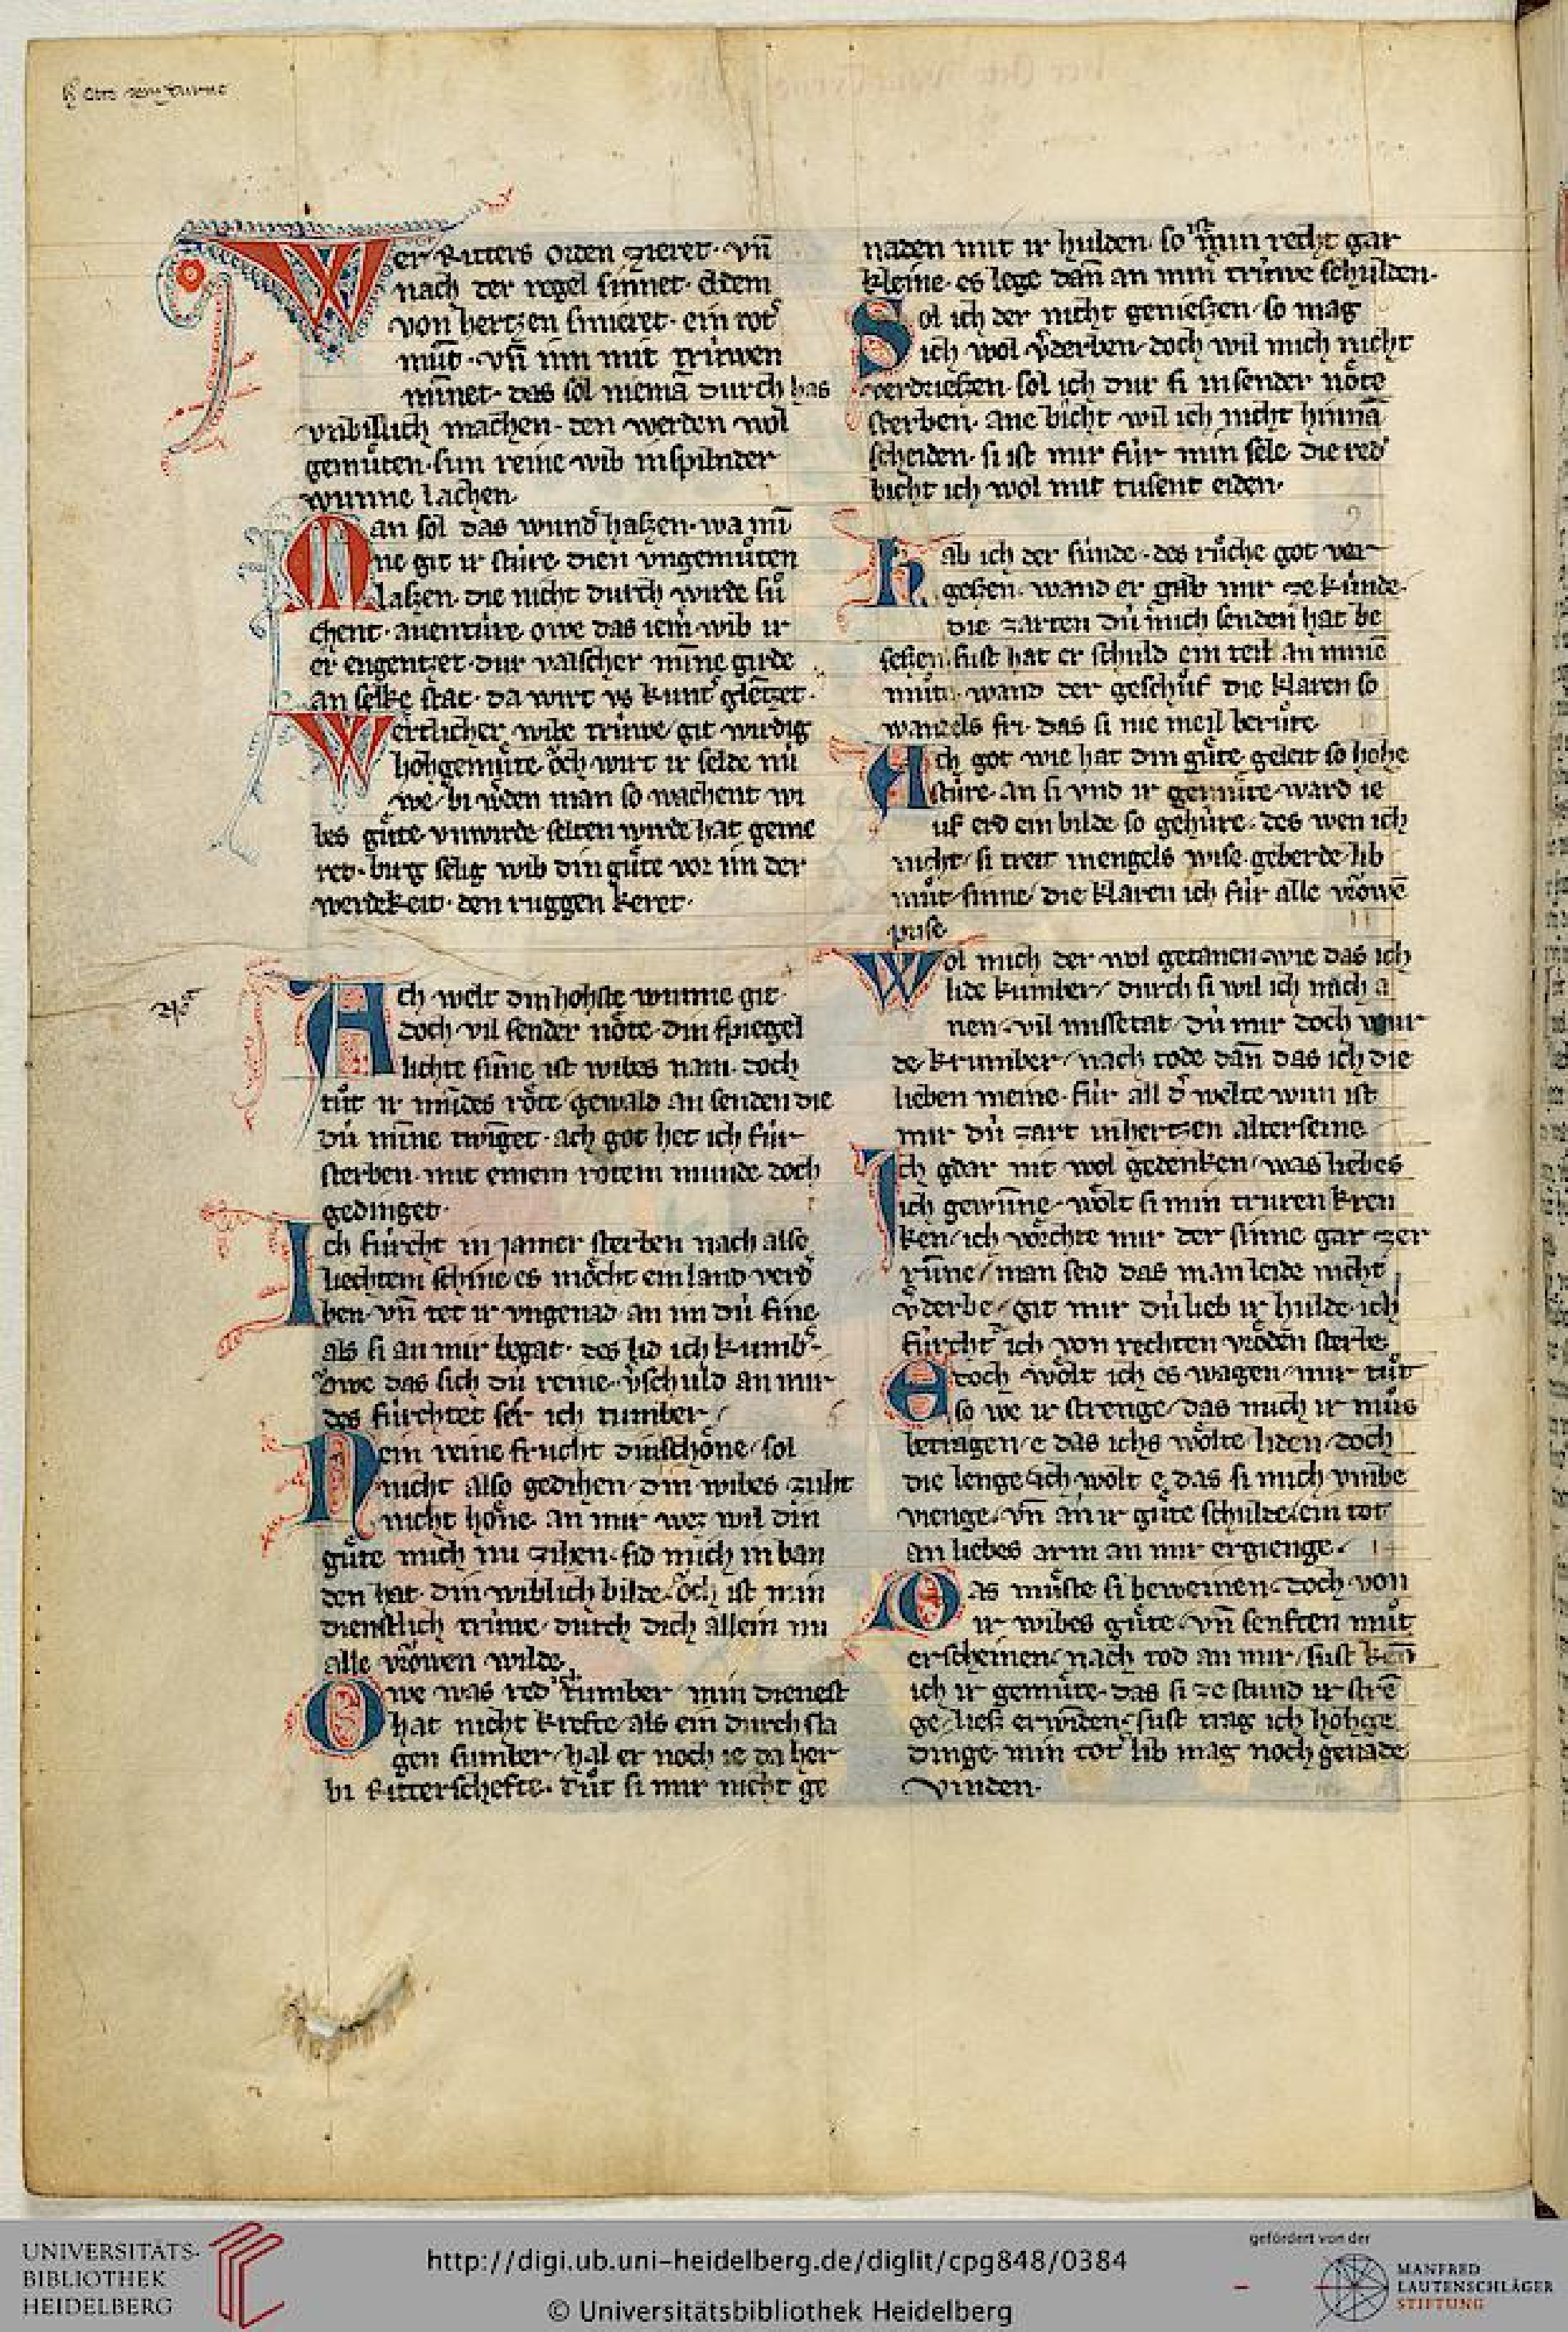 h̾ Otto vom Turne
Wer Ritters orden zieret· vn̄
nach der regel sinnet· dem
von hertzen smieret· ein rot̾
mūt· vn̄ im mit trúwen
minnet· das sol niemā durch has
vnbillich machen· den werden wol
gemuͤten· sun reine wib in spilnder
wunne lachen·
Man sol das wund̾ hassen· wa mī
ne git ir stúre· dien vngemuͦten
lassen· die nicht durch wirde suͦ
chent· auentúre· owe das iem̾ wib ir
er engentzet· dur valscher mīne girde
an selke stat· da wirt vs kunt̾ glētzet·
Wertlicher wibe trúwe/ git wirdig
hohgemuͤte· oͮch wirt ir selde nú
we/ bi w̾den man so wachent wi
bes guͤte· vnwirde selten wirde hat geme
ret· birg selig wib din guͤte vor im der
werdekeit· den ruggen keret·
Ach welt din hohste wunne git·
doch vil sender noͤte· din spiegel
lichte sūne ist wibes nam· doch
tuͦt ir mūdes roͤte/ gewald an senden die
dú mīne twīget· ach got het ich fúr
sterben· mit einem rotem munde doch
gedinget·
Ich fúrcht in jamer sterben nach alse
liechtem schine/ es moͤcht ein land verd̾
ben· vn̄ tet ir vngenad· an im dú fine
als si an mir begat· des lid ich kumb̾·
Owe das sich dú reine· v̾schuld an mir
des fúrchtet ser ich tumber/
Nein reine frucht dinschoͤne/ sol
nicht also gedihen/ din wibes zuht
nicht hoͤne· an mir wez wil din
guͤte mich nu zihen· sid mich in ban
den hat· din wiblich bilde· oͮch ist min
dienstlich trúwe· durch dich allein mi
alle vroͮwen wilde·
Owe was red̾ tumber/ min dienest
hat nicht krefte/ als ein durch sla
gen sumber/ hal er noch ie da her
bi Ritterschefte· Tuͦt si mir nicht ge
naden mit ir hulden· so ist min recht gar
kleine· es lege dan̄ an min trúwe schulden·
Sol ich der nicht geniessen/ so mag
ich wol v̾derben/ doch wil mich nicht
verdriessen· sol ich dur si in sender noͤte
sterben· ane bicht wil ich nicht hinnā
scheiden· si ist mir fúr min sele· die red̾
bicht ich wol mit tusent eiden·
Hab ich der súnde· des ruͦche got ver
gessen· wand er gab mir ze kúnde·
die zarten dú mich senden hat be
sessen· sust hat er schuld ein teil an minē
muͦte· wand der geschuͦf die klaren so
wandels fri· das si nie meil beruͦrte·
Ach got wie hat din guͤte· geleit so hohe
stúre· an si vnd ir gemuͤte· ward ie
uf erd ein bilde· so gehúre· des wen ich
nicht/ si treit mengels wise· geberde/ lib
muͦt/ sinne/ die klaren ich fúr alle vroͮwē
prise
Wol mich der wol getanen· wie das ich
lide kumber/ durch si wil ich mich a
nen· vil missetat/ dú mir doch wur
de krumber/ nach tode dan̄ das ich die
lieben meine· fúr all d̾ welte wun ist
mir dú zart in hertzen alterseine
Ich gdar nit wol gedenken/ was liebes
ich gewūne· woͤlt si min truren kren
ken/ ich voͤrchte mir der sinne gar zer
rūne/ man seid das man leide nicht
v̾derbe/ git mir dú lieb ir hulde· ich
fúrcht ich von rechten vroͤden sterbe
Edoch woͤlt ich es wagen/ mir tuͦt
so we ir strenge/ das mich ir muͦs
betragen/ e das ichs woͤlte liden/ doch
die lenge· ich woͤlt e das si mich vmbe
vienge· vn̄ an ir guͤte schulde/ ein tot
an liebes arm an mir ergienge·
Das muͤste si beweinen· doch von
ir wibes guͤte· vn̄ senften muͦt
erscheinen/ nach tod an mir/ sust ken̄
ich ir gemuͤte· das si ze stund ir strē
ge/ liess erwinden/ sust trag ich hohge
dinge· min tot̾ lib mag noch genade
vinden·
UNIVERSITÄTS-
BIBLIOTHEK
HEIDELBERG
http://digi.ub.uni-heidelberg.de/diglit/cpg848/0384
© Universitätsbibliothek Heidelberg
gefördert von der
MANFRED
LAUTENSCHLÄGER
STIFTUNG